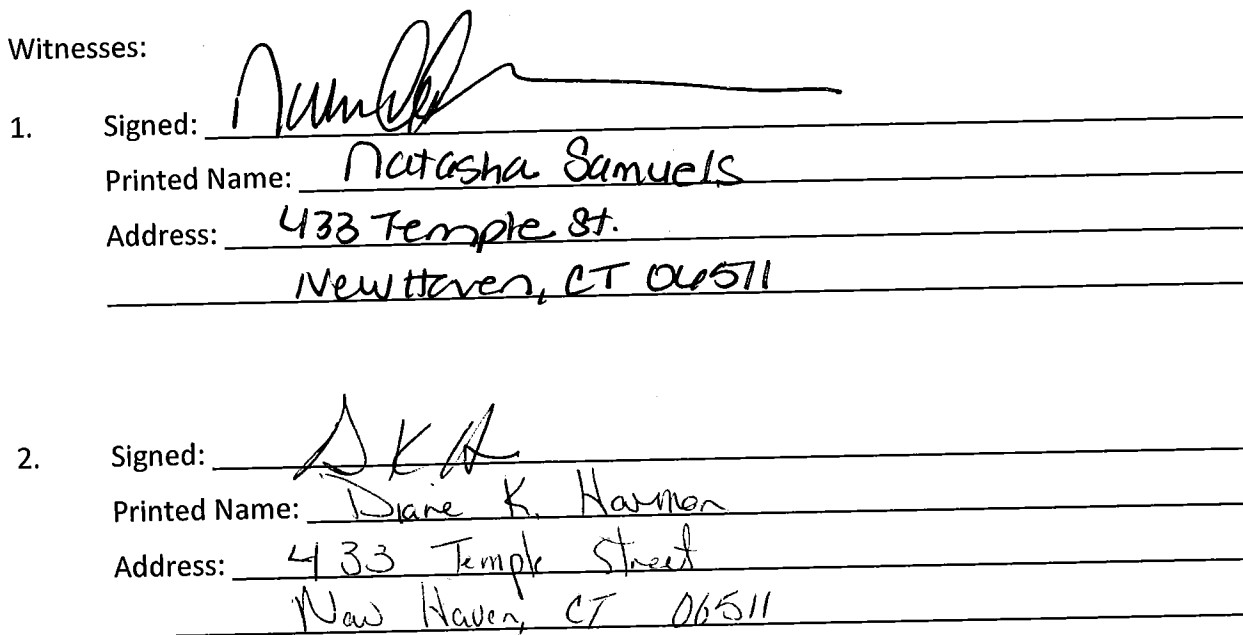 Witnesses:
1. Signed:
Printed Name: Natasha Samuels
Address: 433 Temple St.
New Haven, CT 06511
2. Signed: D K H
Printed Name: Diane K. Harmon
Address: 433 Temple Street
New Haven, CT 06511